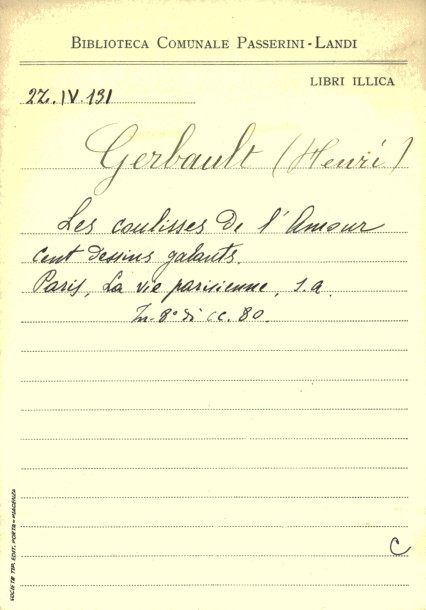 BIBLIOTECA COMUNALE PASSERINI-LANDI
LIBRI ILLICA
2Z.IV.131
Gerbault (Henri)
Les coulisses de l'Amour
cent dessins galants.
Paris, La vie parisienne, s.a.
In-8° di cc. 80.
C
SOCIETÀ TIP. EDIT. PORTA - PIACENZA